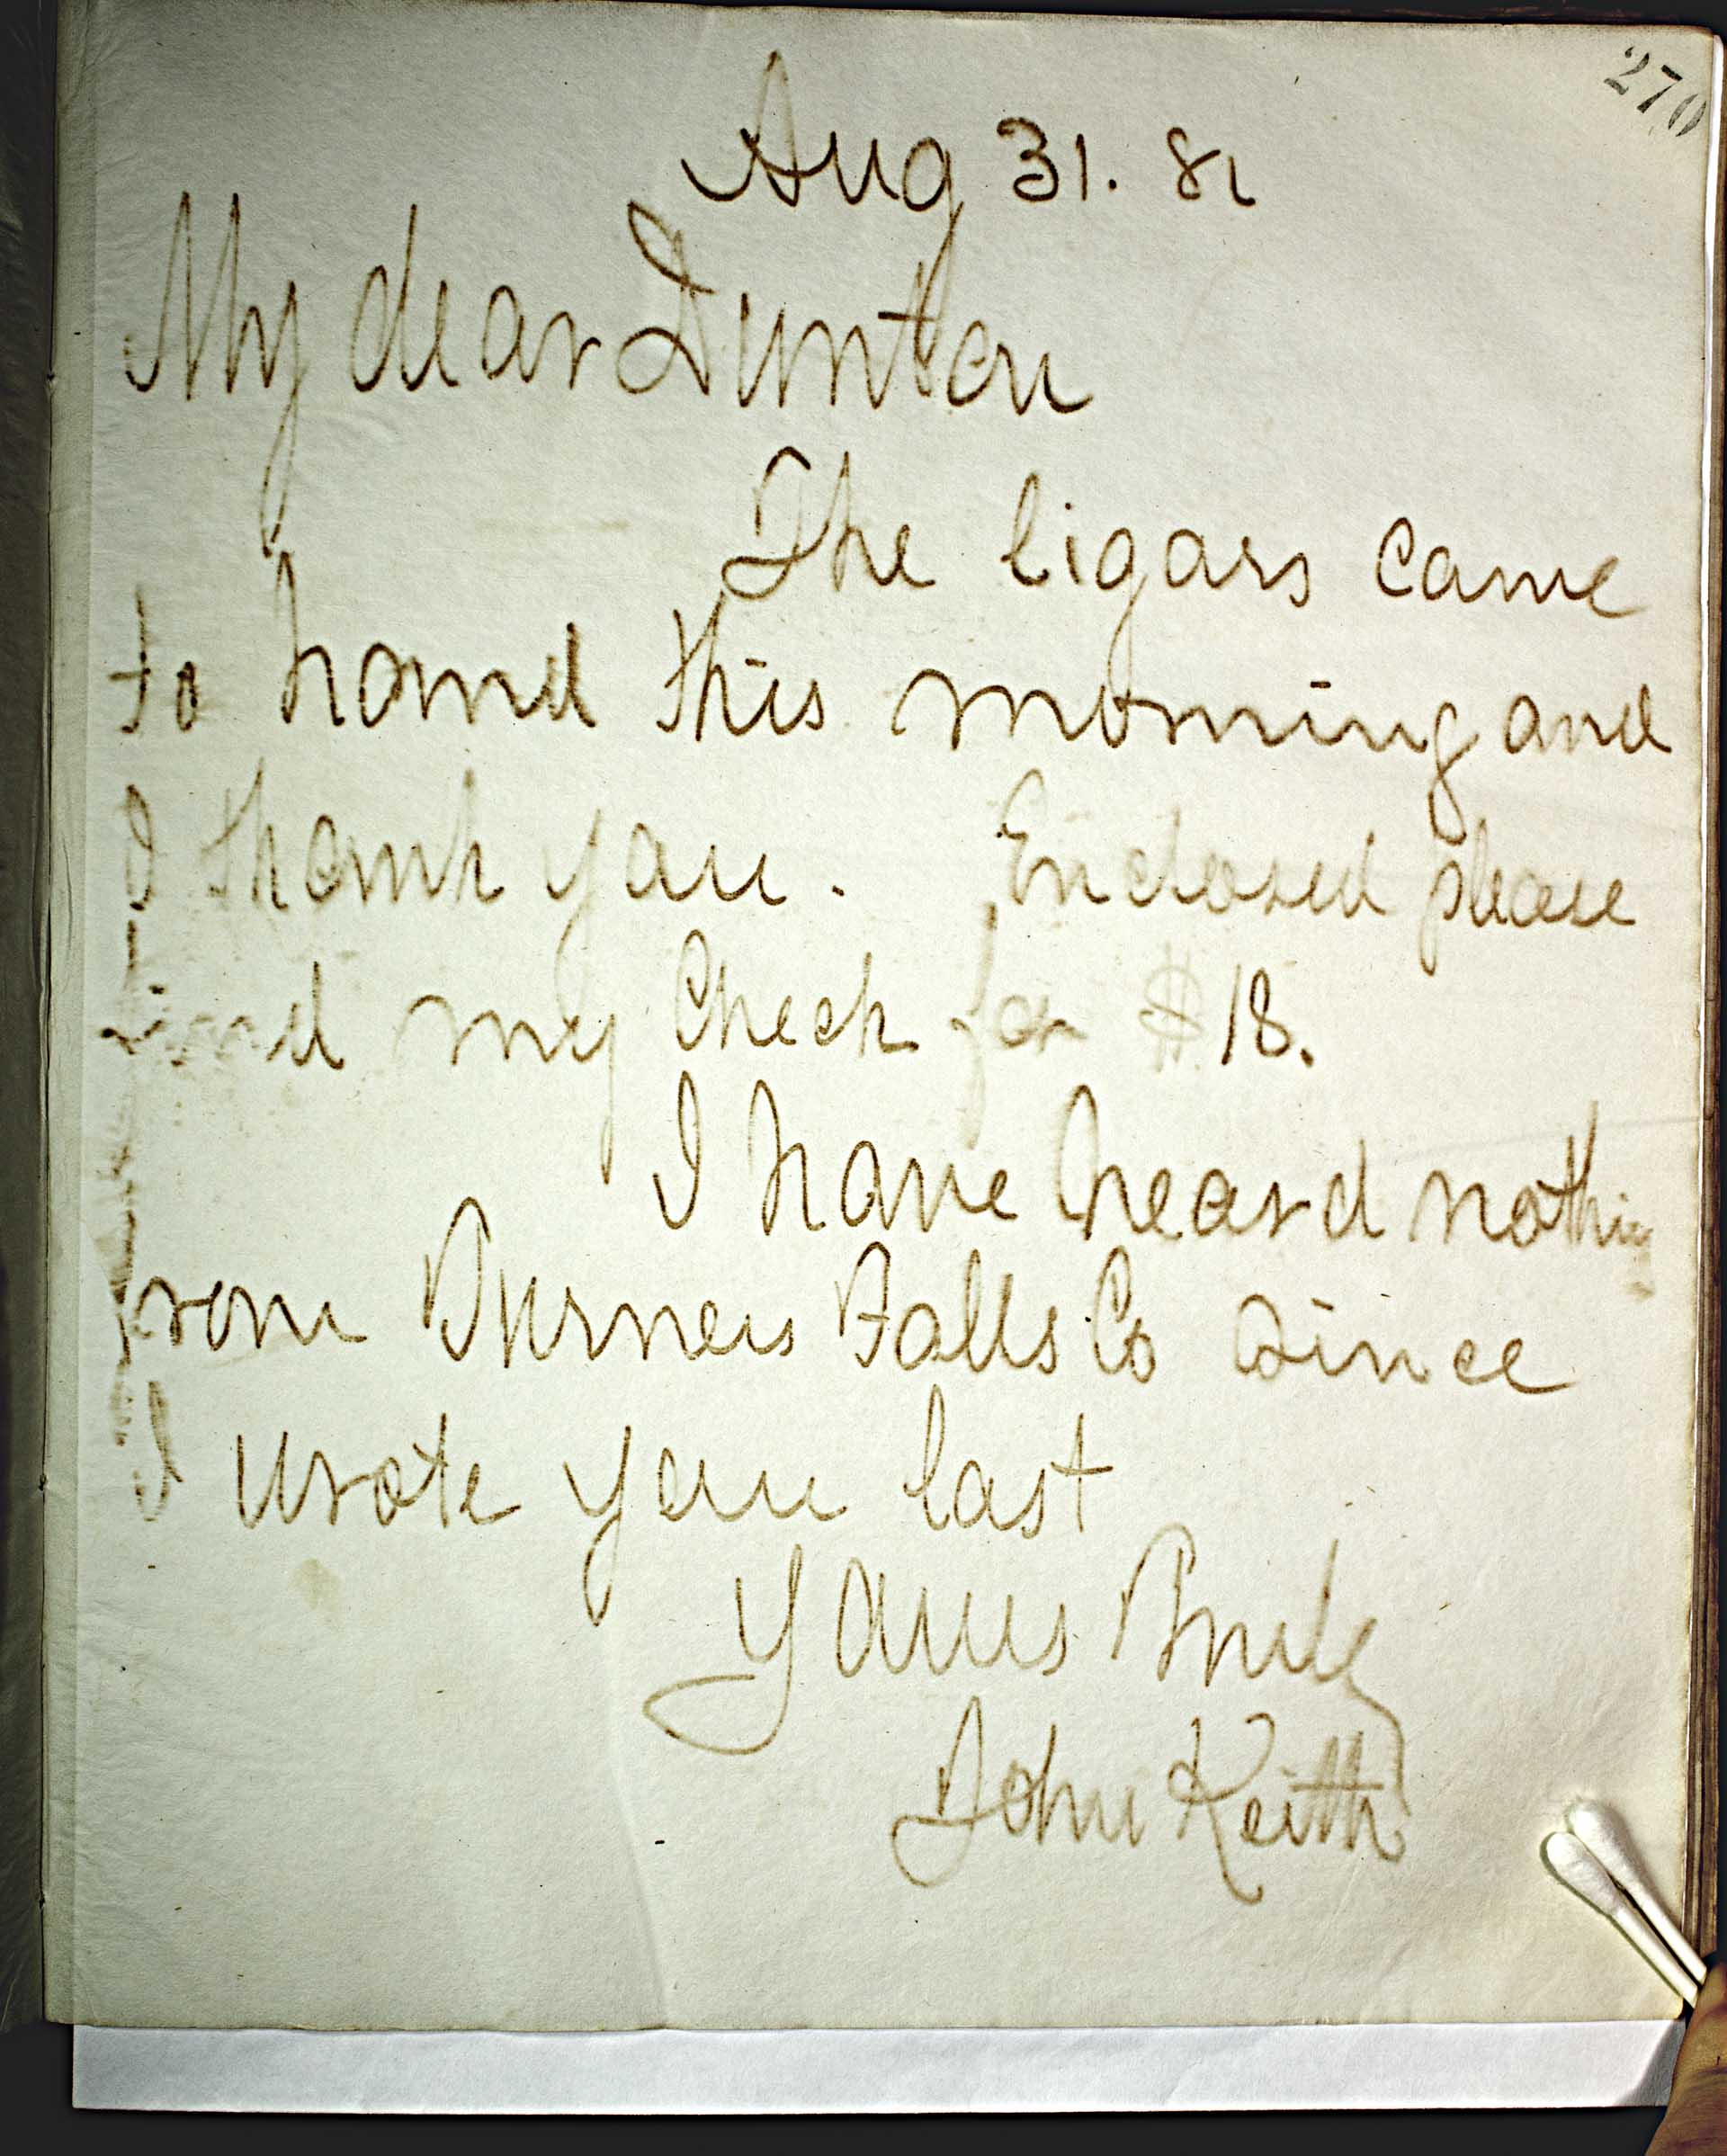 270
Aug 31. 81
My dear Dunton
The Cigars came
to hand this morning and
I thank you. Enclosed please
find my Check for $18.
I have heard nothing
from Turners Falls Co since
I wrote you last
Yours Truly
John Keith